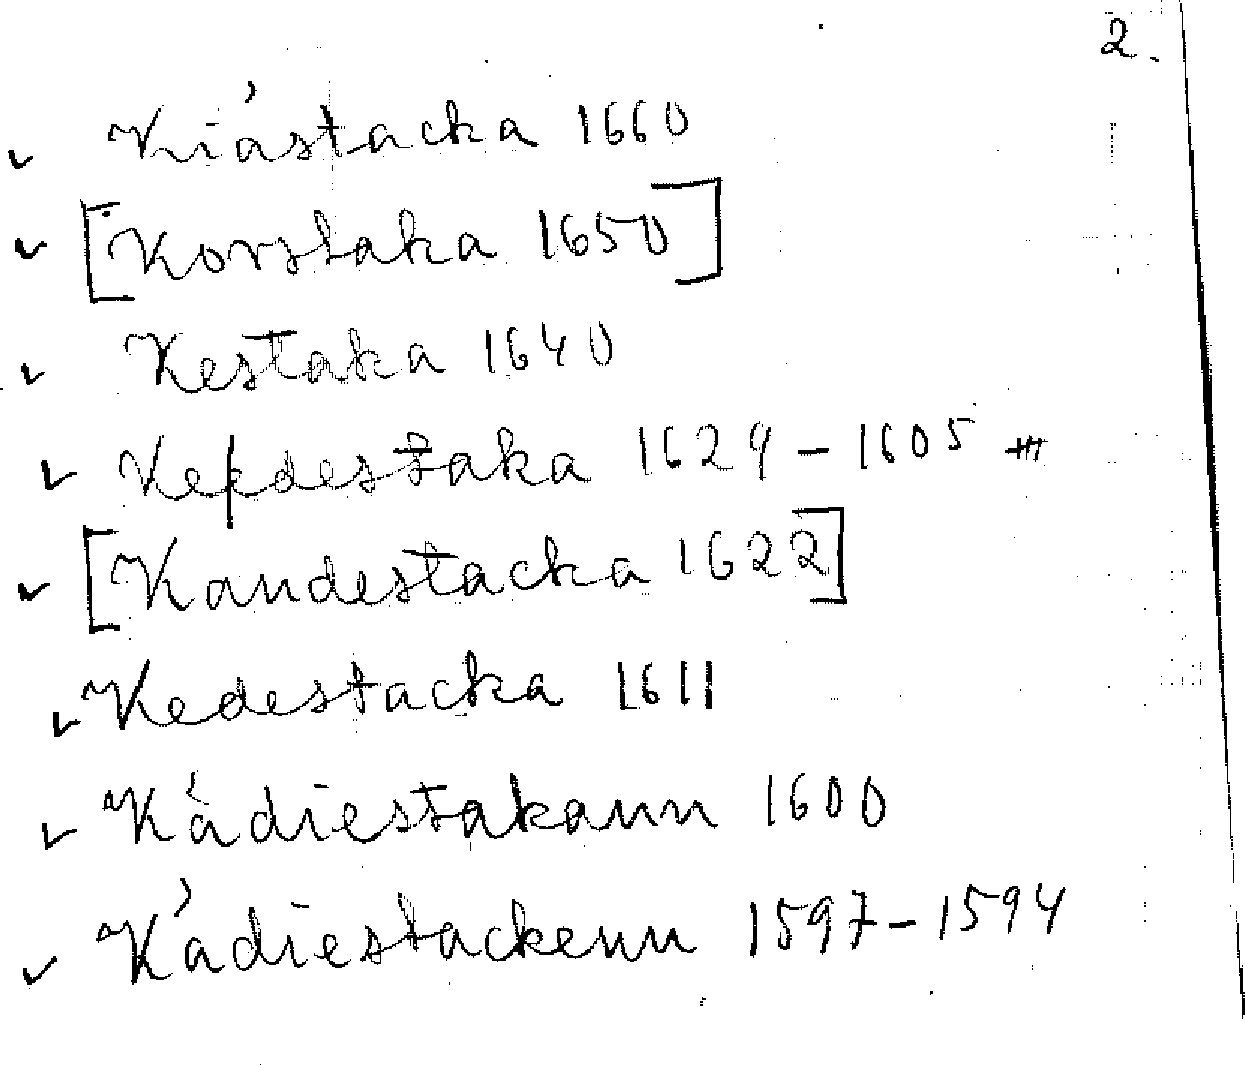 2.
✓ Kiästacka 1660
✓ [Korstaka 1650]
✓ Kestaka 1640
✓ Kepdestaka 1624-1605
✓ [Kandestacka 1622]
✓ Kedestacka 1611
✓ Kädiestakann 1600
✓ Kädiestackenn 1597-1594